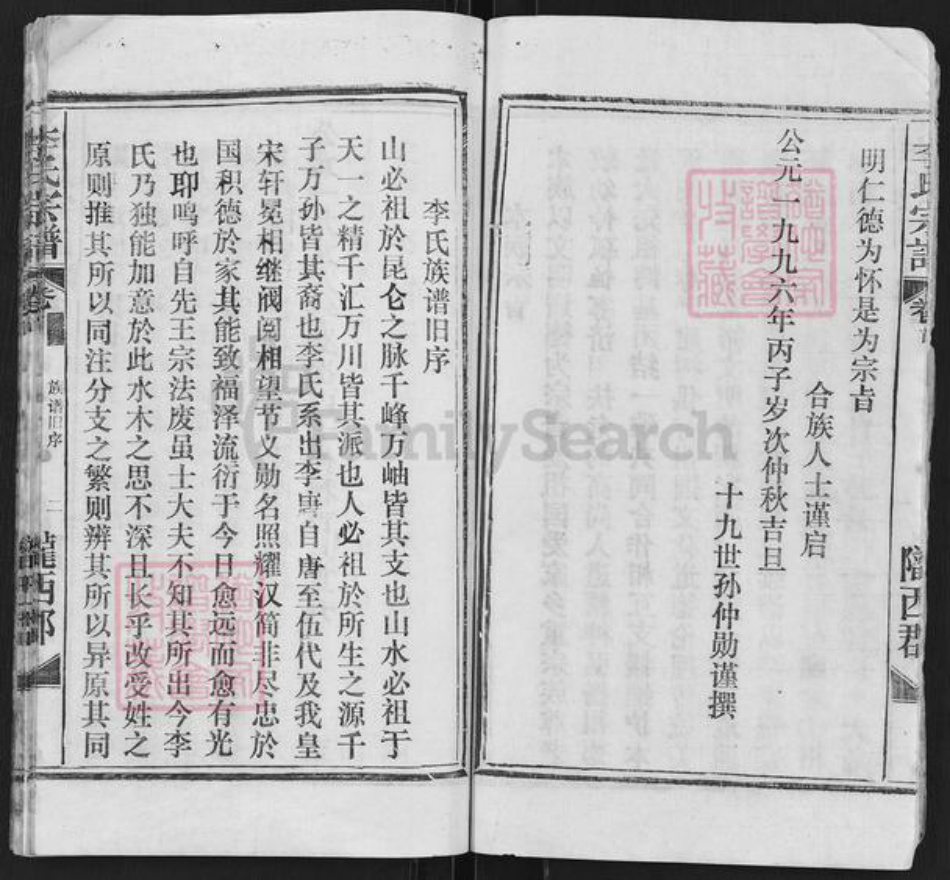 明仁德为怀是为宗旨
合族人士谨启
公元一九九六年丙子岁次仲秋吉旦
十九世孙仲勋谨撰
李氏宗谱
卷首
陇西郡
李氏族谱旧序
山必祖於昆仑之脉千峰万岫皆其支也山水必祖于
天一之精千汇万川皆其派也人必祖於所生之源千
子万孙皆其裔也李氏系出李唐自唐至伍代及我皇
宋轩冕相继阀阅相望节义勋名照耀汉简非尽忠於
国积德於家其能致福泽流衍于今日愈远而愈有光
也耶鸣呼自先王宗法废虽士大夫不知其所出今李
氏乃独能加意於此水木之思不深且长乎改受姓之
原则推其所以同注分支之繁则辨其所以异原其同
李氏宗谱
卷首
族谱旧序
二
陇西郡
FamilySearch